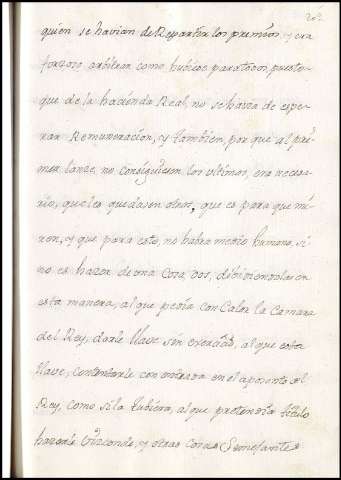 202
quien se havian de Repartir los premios, y era
forzoso arbitrar como hubiese para todos, puesto
que de la hacienda Real, no se havia de espe-
rar Remuneracion, y tambien, por que al pri-
mer lanze no consiguiesen los ultimos, era necesa-
rio, que les quedasen otros, que es para que mi-
ren, y que para esto, no habra medio humano, si
no es hazer de una Cosa, dos, dibidiendolas en
esta manera, al que pedia con Calor la Camara
del Rey, darle llave sin exercicio, al que esta
llave, contentarle con entrada en el aposento del
Rey, como si la tubiera, al que pretendia titulo
hazerle Vizconde, y otras cosas Semejantes